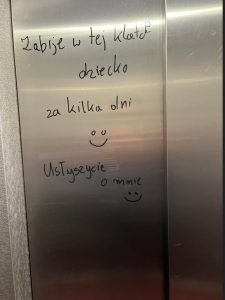 Zabije w tej klatce
dziecko
za kilka dni
Usłyszycie
o mnie